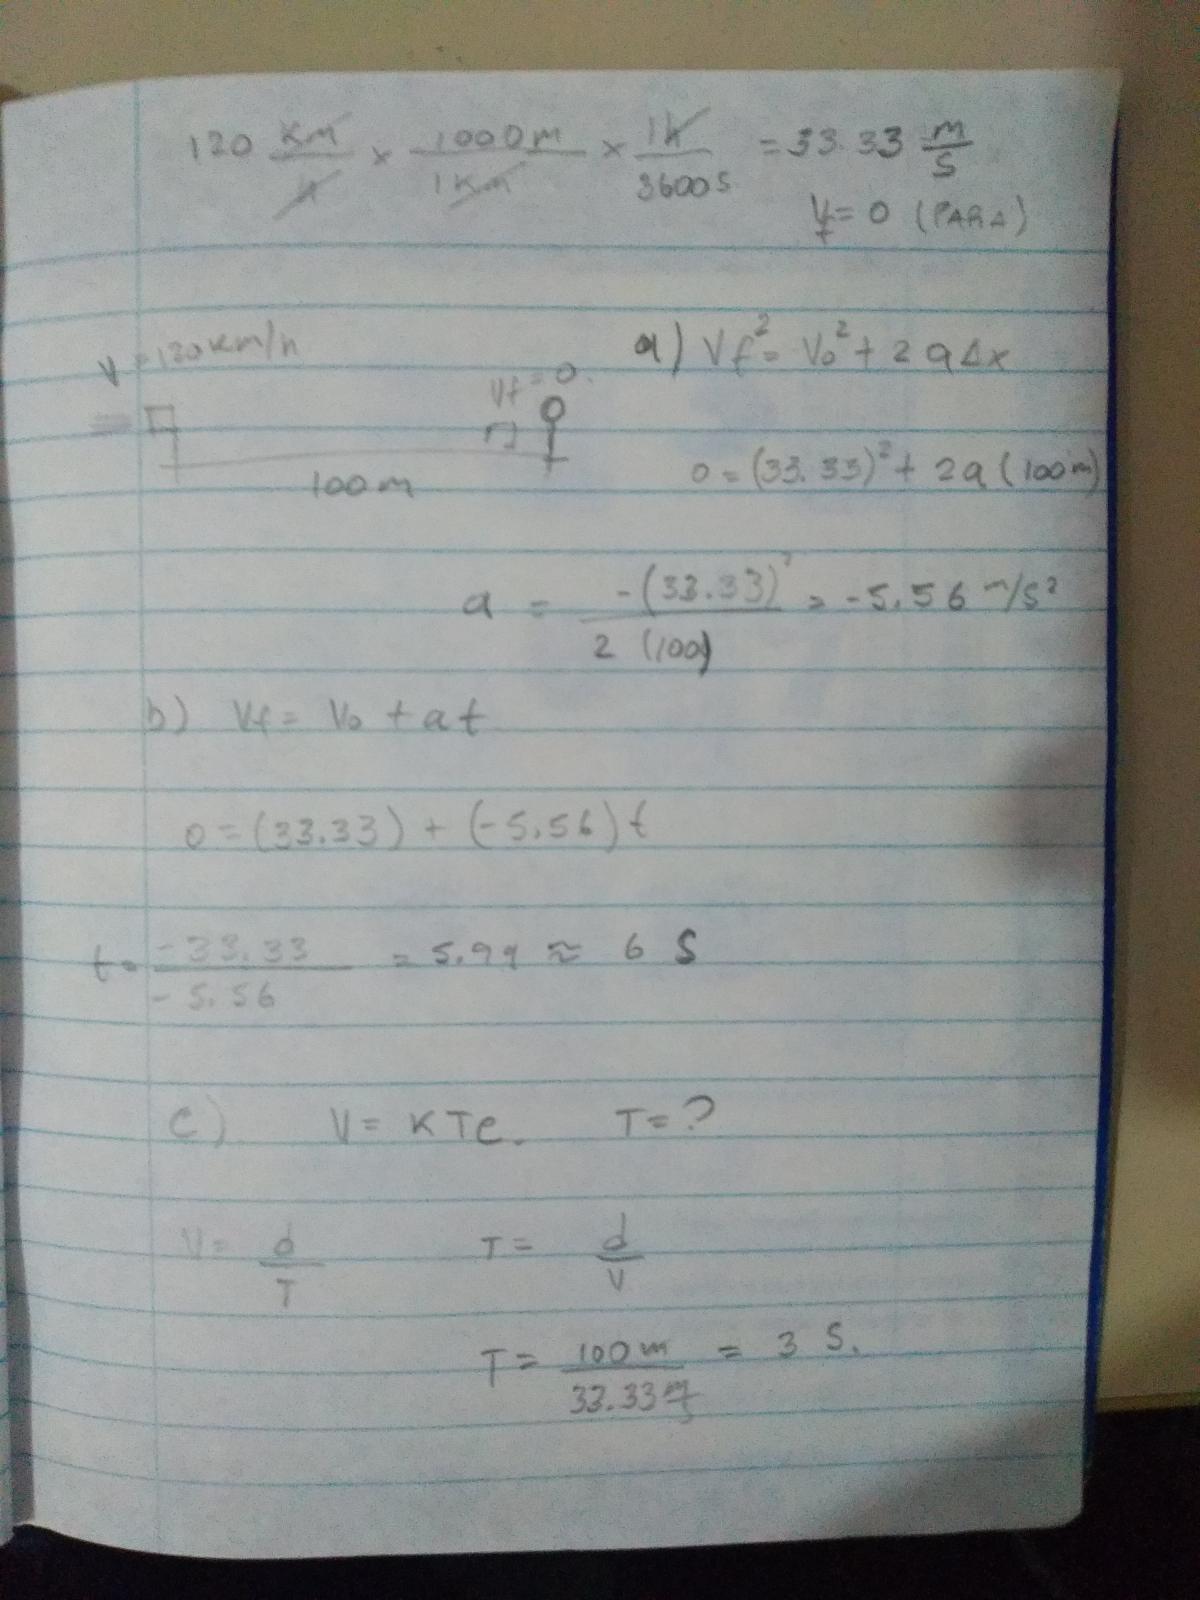 120 Km/h × 1000m/1Km × 1h/3600s = 33.33 m/s
Vf = 0 (PARA)
V = 120 Km/h
Vf = 0.
100 m
a) Vf² = Vo² + 2 a Δx
0 = (33.33)² + 2a (100m)
a = -(33.33)²/2 (100) = -5.56 m/s²
b) Vf = Vo + at
0 = (33.33) + (-5.56) t
t = -33.33/-5.56 = 5.99 ≈ 6 S
c) V = KTe. T = ?
V = d/T T = d/V
T = 100m/33.33 m/s = 3 S.